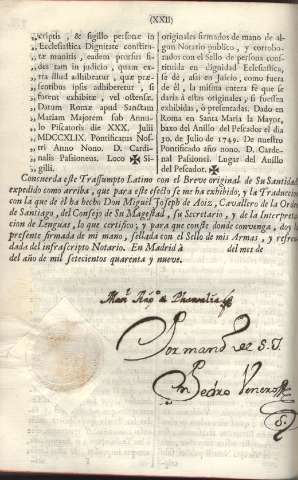 (XXII)
„scriptis, & sigillo personæ in
„Ecclesiastica Dignitate constitu-
„tæ munitis, eadem prorsus fi-
„des tam in judicio, quàm ex-
„tra illud adhibeatur, quæ præ-
„sentibus ipsis adhiberetur, si
„forent exhibitæ, vel ostensæ.
„Datum Romæ apud Sanctam
„Mariam Majorem sub Annu-
„lo Piscatoris die XXX. Julii
„MDCCXLIX. Pontificatus Nos-
„tri Anno Nono. D. Cardi-
„nalis Passioneus. Loco ✠ Si-
„gilli.
originales firmados de mano de al-
gun Notario publico, y corrobo-
rados con el Sello de persona cons-
tituida en dignidad Eclesiastica,
se dè, assi en Juicio, como fuera
de èl, la misma entera fè que se
daria à estas originales, si fuessen
exhibidas, ò presentadas. Dado en
Roma en Santa Maria la Mayor,
baxo del Anillo del Pescador el dia
30. de Julio de 1749. de nuestro
Pontificado año nono. D. Carde-
nal Passionei. Lugar del Anillo
del Pescador. ✠
Concuerda este Trassumpto Latino con el Breve original de su Santidad
expedido como arriba, que para este efecto se me ha exhibido, y la Traduccion
con la que de èl ha hecho Don Miguel Joseph de Aoiz, Cavallero de la Orden
de Santiago, del Consejo de su Magestad, su Secretario, y de la Interpreta-
cion de Lenguas, lo que certifico; y para que conste donde convenga, doy la
presente firmada de mi mano, sellada con el Sello de mis Armas, y refren-
dada del infrascripto Notario. En Madrid à del mes de
del año de mil setecientos quarenta y nueve.
Por mand.º de S. I.
Pedro Venero